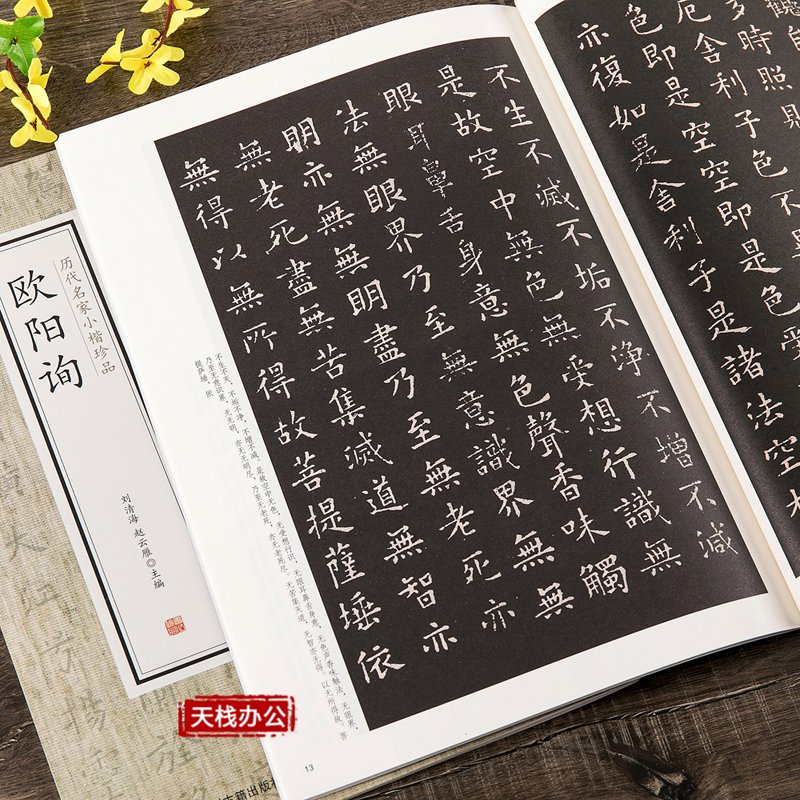 多時照見
厄舍利子色不異
色即是空空即是色受
亦復如是舍利子是諸法空相
不生不滅不垢不淨不增不減
是故空中無色無受想行識無
眼耳鼻舌身意無色聲香味觸
法無眼界乃至無意識界無無
明亦無無明盡乃至無老死亦
無老死盡無苦集滅道無智亦
無得以無所得故菩提薩埵依
不生不灭，不垢不净，不增不减，是故空中无色，无受想行识，无眼耳鼻舌身意，无色声香味触法，无眼界，
乃至无意识界，无无明，亦无无明尽，乃至无老死，亦无老死尽，无苦集灭道，无智亦无得。以无所得故。菩
提萨埵，依
13
历代名家小楷珍品
欧阳询
刘清海 赵云雁◎主编
天栈办公
古籍出版